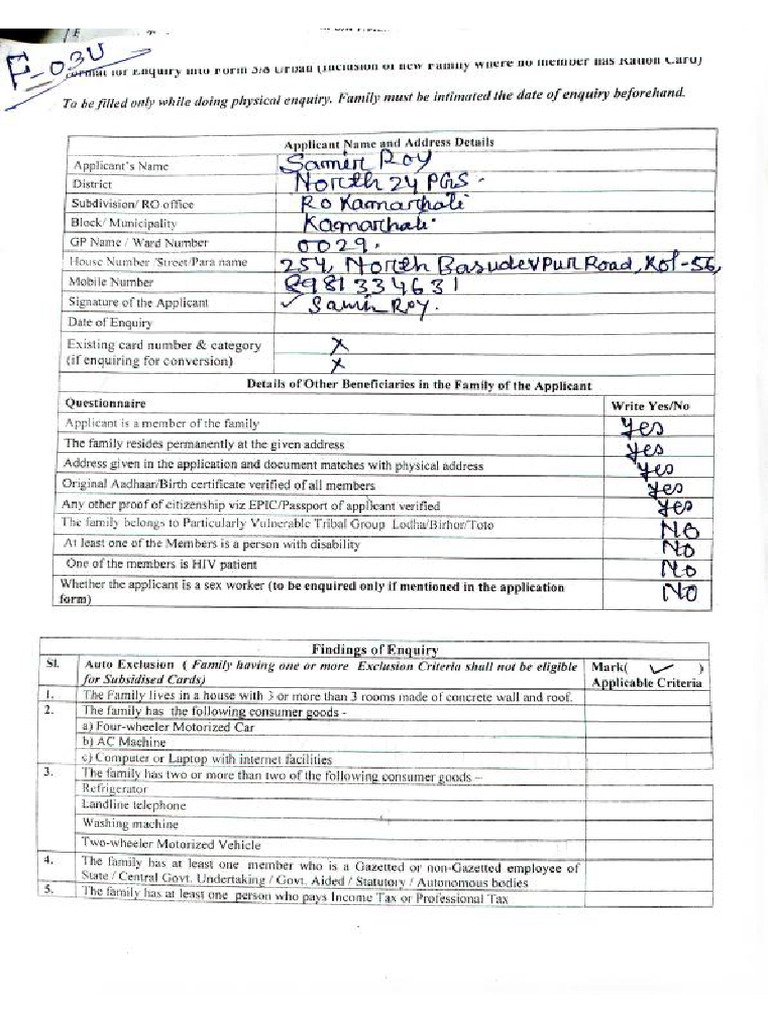 F-03U
Format for Enquiry into Form 3/8 Urban (Inclusion of new Family where no member has Ration Card)
To be filled only while doing physical enquiry. Family must be intimated the date of enquiry beforehand.
Applicant Name and Address Details
Applicant's Name Samir Roy
District North 24 PGS.
Subdivision/ RO office RO Kamarhati
Block/ Municipality Kamarhati.
GP Name / Ward Number 0029.
House Number /Street/Para name 254, North Basudevpur Road, Kol-56,
Mobile Number 8981334631
Signature of the Applicant ✓ Samir Roy.
Date of Enquiry
Existing card number & category X
(if enquiring for conversion) X
Details of Other Beneficiaries in the Family of the Applicant
Questionnaire Write Yes/No
Applicant is a member of the family Yes
The family resides permanently at the given address Yes
Address given in the application and document matches with physical address Yes
Original Aadhaar/Birth certificate verified of all members Yes
Any other proof of citizenship viz EPIC/Passport of applicant verified Yes
The family belongs to Particularly Vulnerable Tribal Group Lodha/Birhor/Toto No
At least one of the Members is a person with disability No
One of the members is HIV patient No
Whether the applicant is a sex worker (to be enquired only if mentioned in the application No
form)
Findings of Enquiry
Sl. Auto Exclusion ( Family having one or more Exclusion Criteria shall not be eligible Mark( ✓ )
for Subsidised Cards) Applicable Criteria
1. The Family lives in a house with 3 or more than 3 rooms made of concrete wall and roof.
2. The family has the following consumer goods -
a) Four-wheeler Motorized Car
b) AC Machine
c) Computer or Laptop with internet facilities
3. The family has two or more than two of the following consumer goods –
Refrigerator
Landline telephone
Washing machine
Two-wheeler Motorized Vehicle
4. The family has at least one member who is a Gazetted or non-Gazetted employee of
State / Central Govt. Undertaking / Govt. Aided / Statutory / Autonomous bodies
5. The family has at least one person who pays Income Tax or Professional Tax